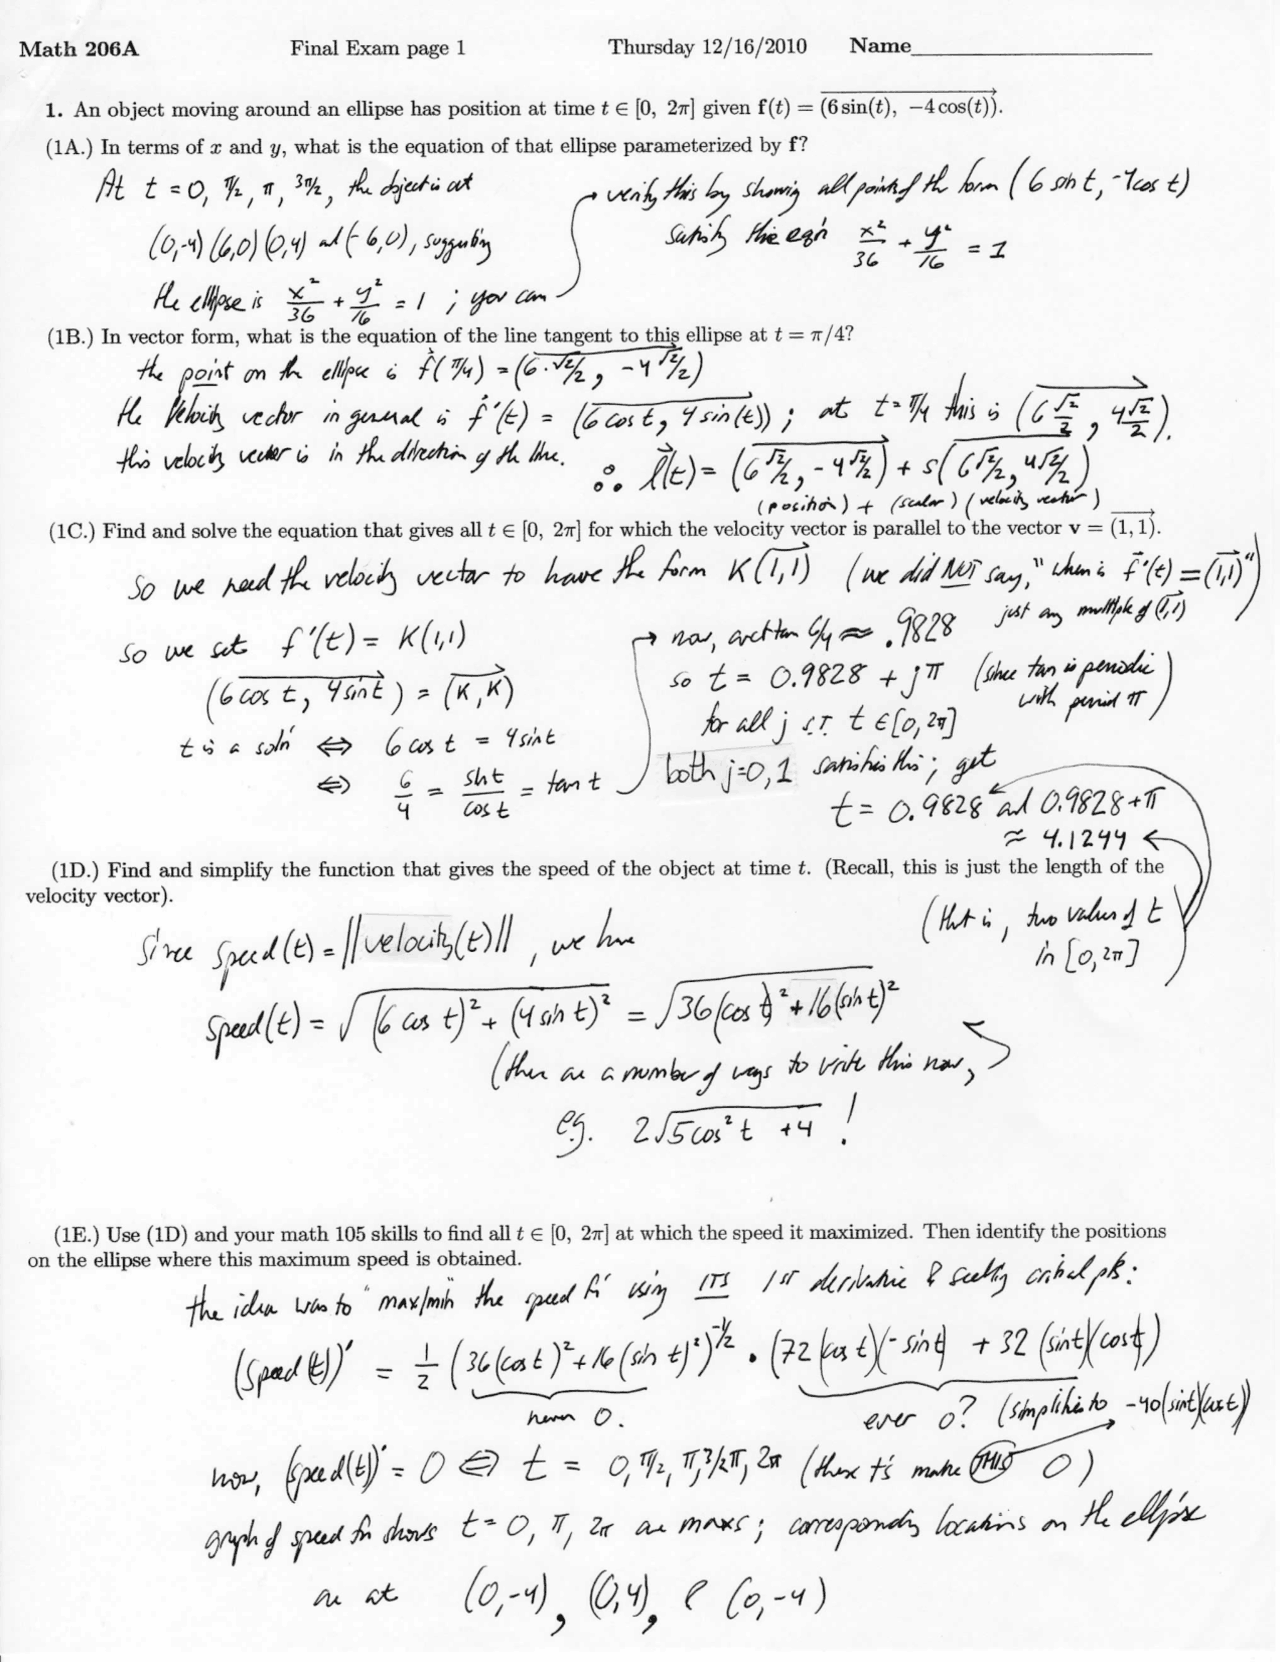 Math 206A Final Exam page 1 Thursday 12/16/2010 Name
1. An object moving around an ellipse has position at time t ∈ [0, 2π] given f(t) = (6 sin(t), −4 cos(t)).
(1A.) In terms of x and y, what is the equation of that ellipse parameterized by f?
At t = 0, π/2, π, 3π/2, the object is at
(0,-4) (6,0) (0,4) and (-6,0), suggesting
the ellipse is x²/36 + y²/16 = 1 ; you can
verify this by showing all points of the form (6 sin t, -4 cos t)
satisfy the eqn x²/36 + y²/16 = 1
(1B.) In vector form, what is the equation of the line tangent to this ellipse at t = π/4?
the point on the ellipse is f(π/4) = (6·√2/2, -4√2/2)
the velocity vector in general is f'(t) = (6 cos t, 4 sin(t)) ; at t=π/4 this is (6√2/2, 4√2/2).
this velocity vector is in the direction of the line. ∴ l(t) = (6√2/2, -4√2/2) + s(6√2/2, 4√2/2)
(position) + (scalar) (velocity vector)
(1C.) Find and solve the equation that gives all t ∈ [0, 2π] for which the velocity vector is parallel to the vector v = (1, 1).
So we need the velocity vector to have the form K(1,1) (we did NOT say, "when is f'(t) = (1,1)"
just any multiple of (1,1))
so we set f'(t) = K(1,1)
(6 cos t, 4 sin t) = (K, K)
t is a sol'n ⇔ 6 cos t = 4 sin t
⇔ 6/4 = sin t/cos t = tan t
now, arctan 6/4 ≈ .9828
so t = 0.9828 + jπ (since tan is periodic
with period π)
for all j s.t. t ∈ [0, 2π]
both j=0, 1 satisfies this; get
t = 0.9828 and 0.9828+π
≈ 4.1244
(that is, two values of t
in [0, 2π]
(1D.) Find and simplify the function that gives the speed of the object at time t. (Recall, this is just the length of the
velocity vector).
Since speed(t) = ||velocity(t)||, we have
speed(t) = √((6 cos t)² + (4 sin t)²) = √(36(cos t)² + 16(sin t)²)
(there are a number of ways to write this now,
e.g. 2√(5cos²t + 4) !
(1E.) Use (1D) and your math 105 skills to find all t ∈ [0, 2π] at which the speed it maximized. Then identify the positions
on the ellipse where this maximum speed is obtained.
the idea was to "max/min" the speed fn using ITS 1st derivative & seeking critical pts:
(speed(t))' = 1/2 (36(cos t)² + 16(sin t)²)^-1/2 · (72(cos t)(-sin t) + 32 (sin t)(cos t))
never 0. ever 0? (simplifies to -40(sin t)(cos t))
now, (speed(t))' = 0 ⇔ t = 0, π/2, π, 3/2π, 2π (these t's make THIS 0)
graph of speed fn shows t = 0, π, 2π are maxs; corresponding locations on the ellipse
are at (0,-4), (0,4), & (0,-4)